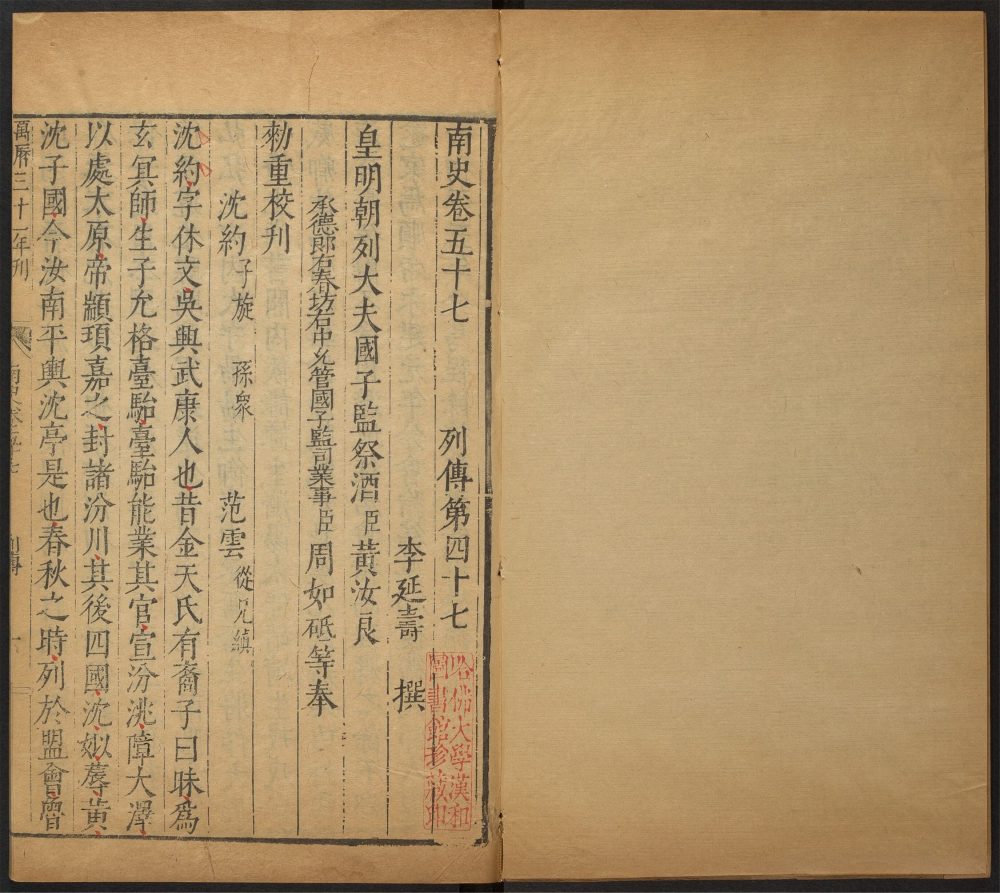 南史卷五十七 列傳第四十七
李延壽 撰
皇明朝列大夫國子監祭酒臣黃汝良
承德郎右春坊右中允管國子監司業事臣周如砥等奉
勑重校刊
沈約子旋 孫衆 范雲從兄縝
沈約字休文吳興武康人也昔金天氏有裔子曰昧爲
玄冥師生子允格臺駘臺駘能業其官宣汾洮障大澤
以處太原帝顓頊嘉之封諸汾川其後四國沈姒蓐黃
沈子國今汝南平輿沈亭是也春秋之時列於盟會魯
萬曆三十一年刊 列傳 一
哈佛大學漢和
圖書館珍藏印